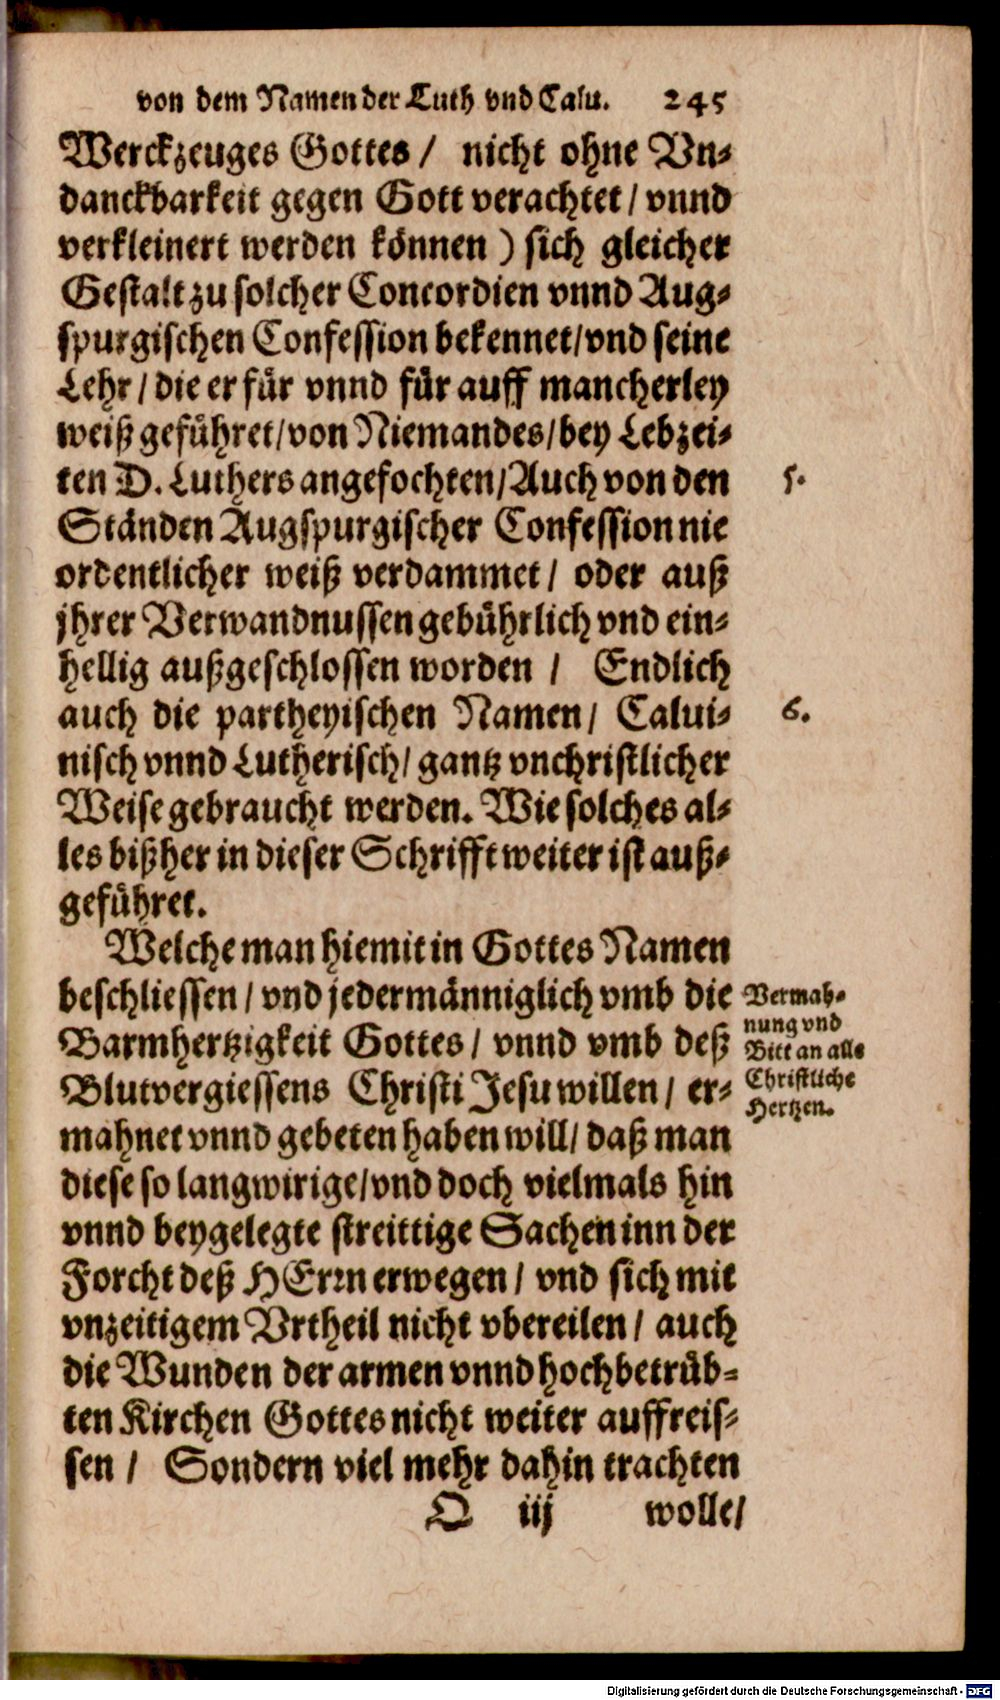 von dem Namen der Luth vnd Calu. 245
Werckzeuges Gottes / nicht ohne Vn-
danckbarkeit gegen Gott verachtet / vnnd
verkleinert werden können ) sich gleicher
Gestalt zu solcher Concordien vnnd Aug-
spurgischen Confession bekennet/vnd seine
Lehr / die er für vnnd für auff mancherley
weiß geführet/von Niemandes/bey Lebzei-
ten D. Luthers angefochten/Auch von den
5.
Ständen Augspurgischer Confession nie
ordentlicher weiß verdammet / oder auß
jhrer Verwandnussen gebührlich vnd ein-
hellig außgeschlossen worden / Endlich
auch die partheyischen Namen / Calui-
6.
nisch vnnd Lutherisch/ gantz vnchristlicher
Weise gebraucht werden. Wie solches al-
les bißher in dieser Schrifft weiter ist auß-
geführet.
Welche man hiemit in Gottes Namen
beschliessen / vnd jedermänniglich vmb die
Barmhertzigkeit Gottes / vnnd vmb deß
Blutvergiessens Christi Jesu willen / er-
mahnet vnnd gebeten haben will/ daß man
diese so langwirige/vnd doch vielmals hin
vnnd beygelegte streittige Sachen inn der
Forcht deß HErrn erwegen / vnd sich mit
vnzeitigem Vrtheil nicht vbereilen / auch
die Wunden der armen vnnd hochbetrüb-
ten Kirchen Gottes nicht weiter auffreis-
sen / Sondern viel mehr dahin trachten
Vermah-
nung vnd
Bitt an alle
Christliche
Hertzen.
Q iij wolle/
Digitalisierung gefördert durch die Deutsche Forschungsgemeinschaft - DFG